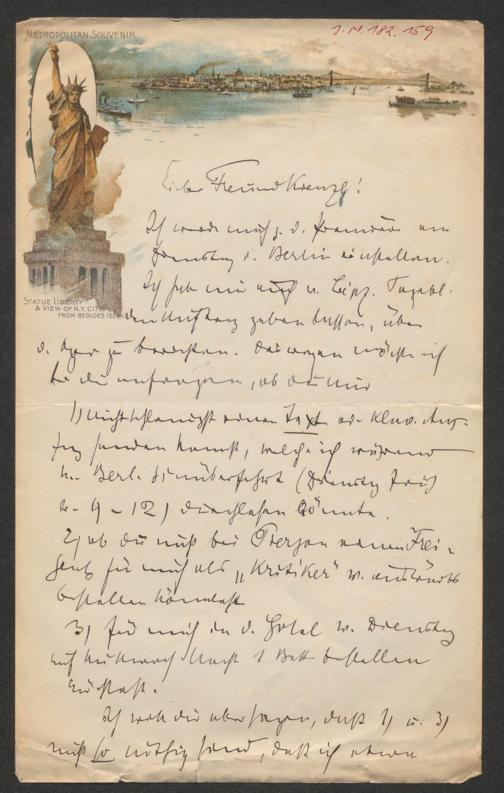 METROPOLITAN SOUVENIR
I.N. 182.159
STATUE LIBERTY
& VIEW OF N.Y. CITY
FROM BEDLOES ISLAND
Lieber Freund Krenzl!
Ich werde mich z. d. Première am
Dienstag i. Berlin einstellen.
Ich hab mir auch v. Leipz. Tagebl.
den Auftrag geben lassen, über
d. Oper zu berichten. Deswegen möchte ich
bei dir anfragen, ob du mir
1) nicht schleunigst einen Text od. Klav. Aus-
zug senden kannst, welche ich während
der Berl. Hinüberfahrt (Dienstag Früh
9 - 12) durchlesen könnte.
2) ob du mir bei Pierson einen Frei-
sitz für mich als „Kritiker" v. auswärts
bestellen könntest
3) für mich in d. Hotel v. Dienstag
auf Mittwoch Nacht 1 Bett bestellen
Ich will dir aber sagen, daß 1) u. 3)
nicht so nöthig sind, daß ich etwa